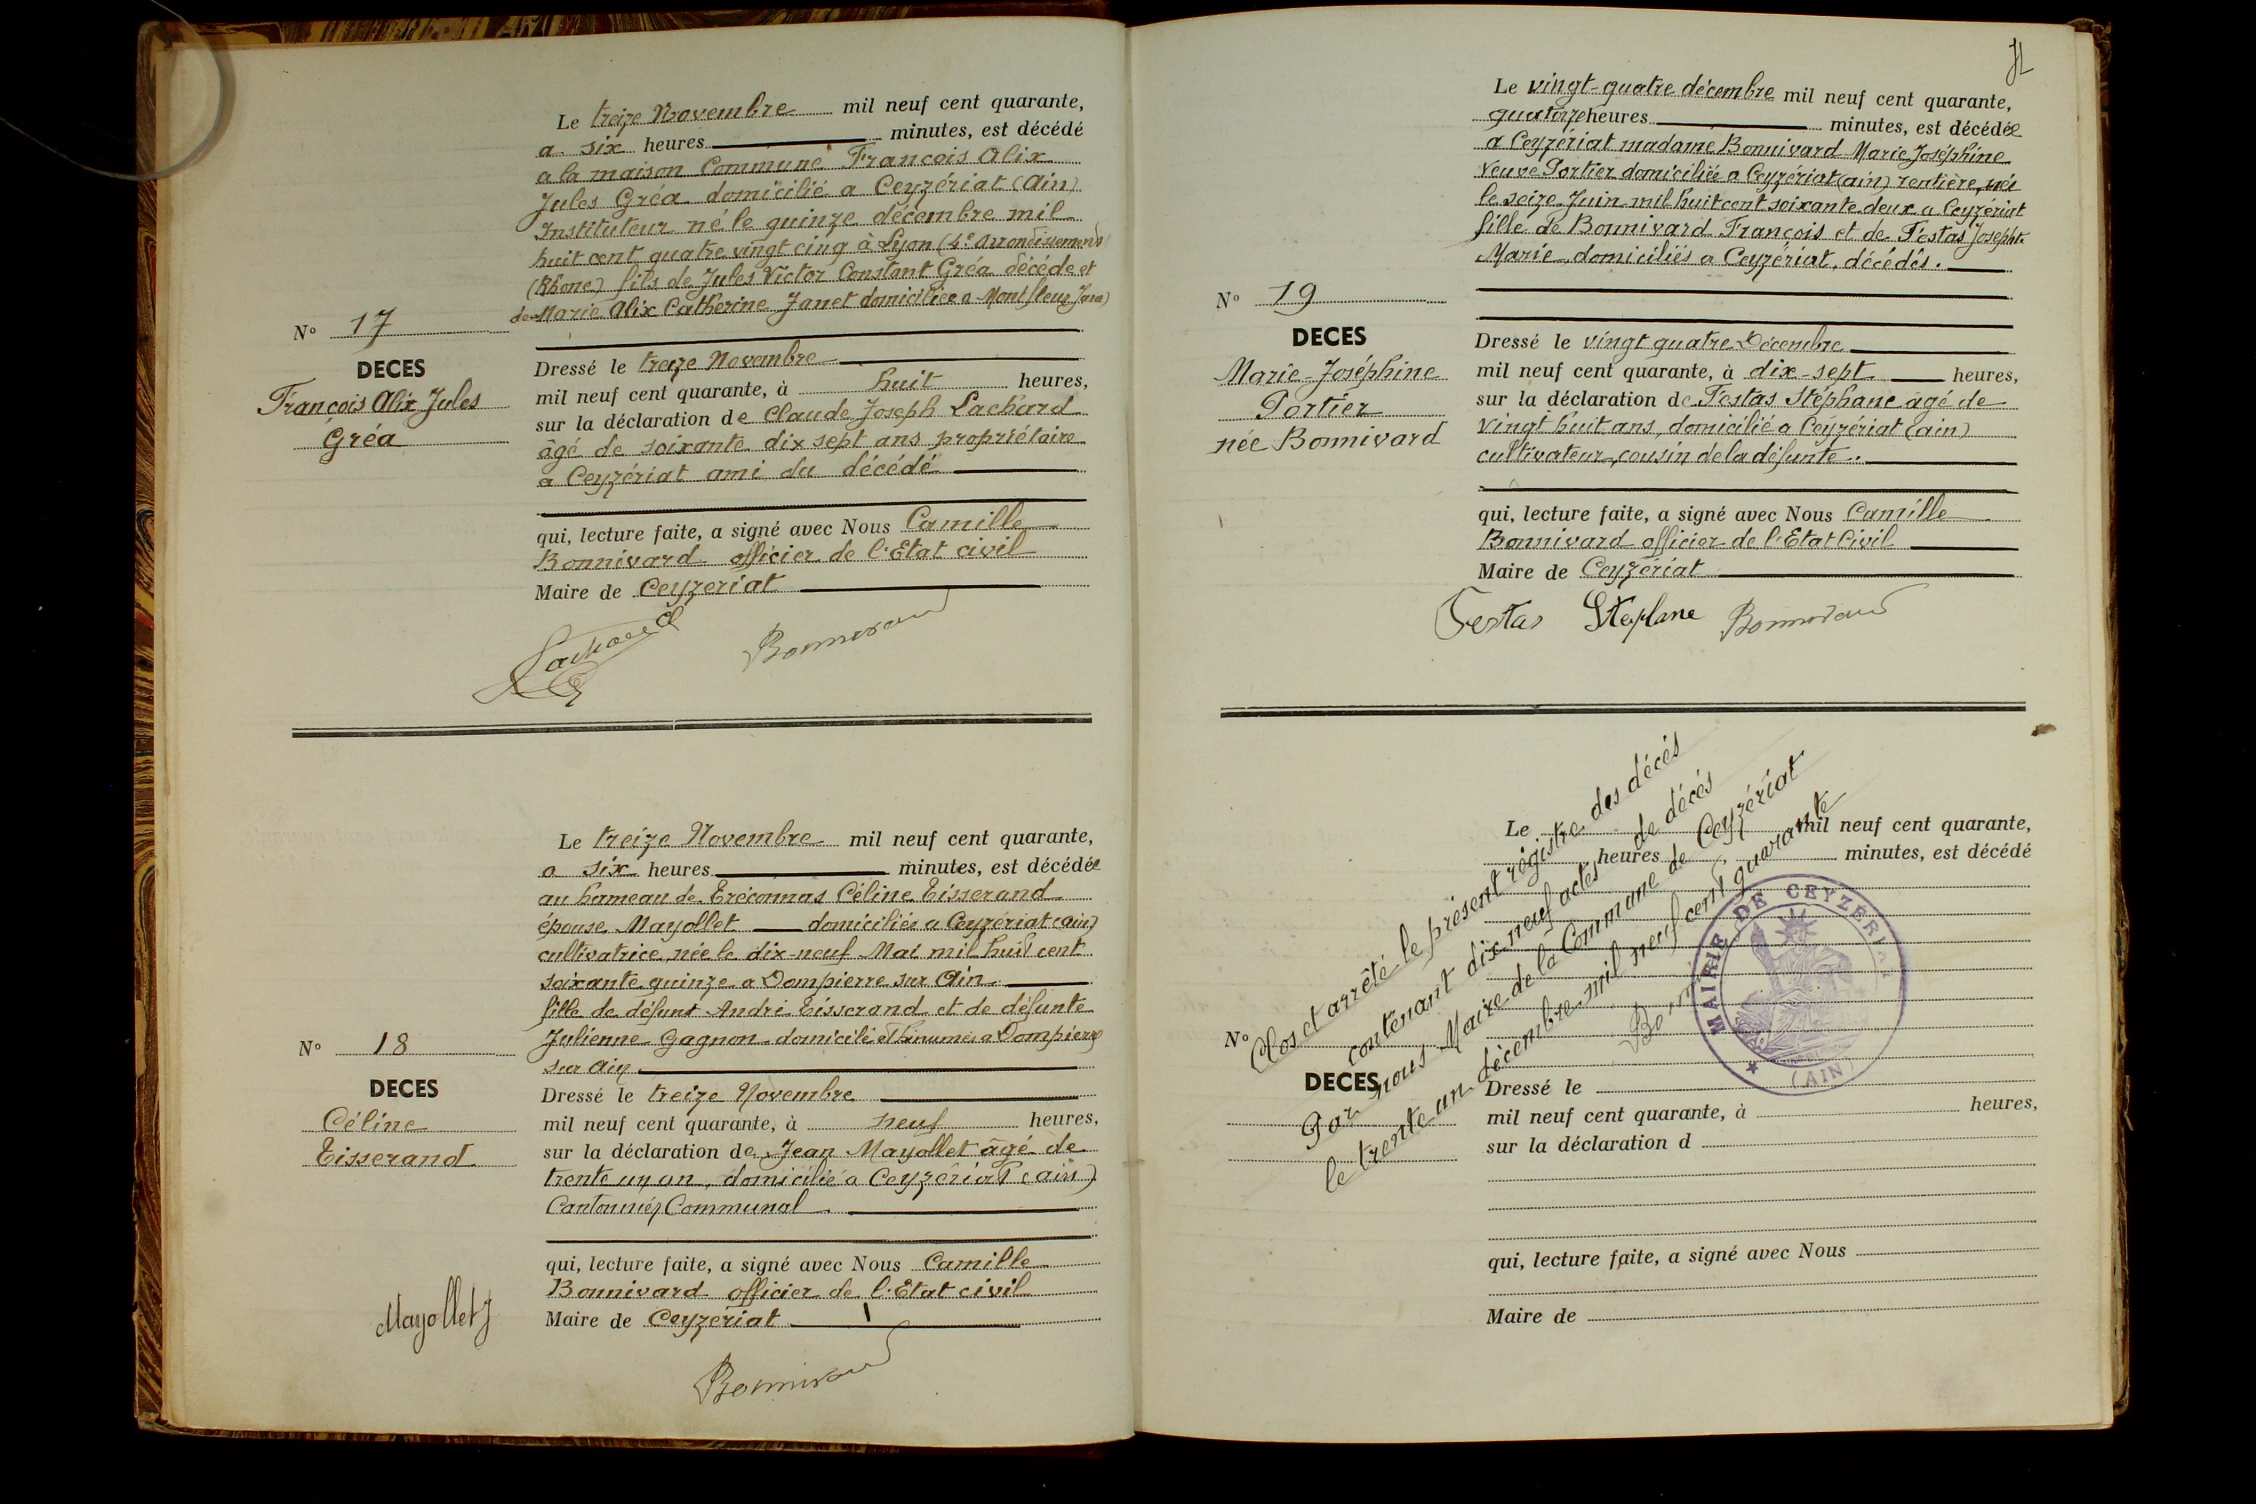 Le treize Novembre mil neuf cent quarante,
a six heures minutes, est décédé
a la maison Commune François Alix
Jules Gréa domicilié a Ceyzériat (Ain)
Instituteur né le quinze décembre mil
huit cent quatre vingt cinq à Lyon (4e Arrondissement)
(Rhone) fils de Jules Victor Constant Gréa décéde et
de Marie Alix Catherine Janet domiciliée a Montfleur Jura)
N° 17
DECES
François Alix Jules
Gréa
Dressé le treize Novembre
mil neuf cent quarante, à huit heures,
sur la déclaration de Claude Joseph Lachard
âgé de soixante dix sept ans propriétaire
a Ceyzériat ami du décédé
qui, lecture faite, a signé avec Nous Camille
Bonnivard officier de l'Etat civil
Maire de Ceyzeriat
Lachard Bonnivard
Le treize Novembre mil neuf cent quarante,
a six heures minutes, est décédée
au hameau de Tréconnas Céline Tisserand
épouse Mayollet domiciliée a Ceyzériat (ain)
cultivatrice née le dix-neuf Mai mil huit cent
soixante quinze a Dompierre sur Ain
fille de défunt André Tisserand et de défunte
Julienne Gagnon domicilié et inhumés a Dompierre
sur Ain
N° 18
DECES
Céline
Tisserand
Dressé le treize Novembre
mil neuf cent quarante, à neuf heures,
sur la déclaration de Jean Mayollet âgé de
trente un an, domicilié a Ceyzériat (ain)
Cantonnier Communal
qui, lecture faite, a signé avec Nous Camille
Bonnivard officier de l'Etat civil
Maire de Ceyzériat
Mayollet J
Bonnivard
Le vingt-quatre décembre mil neuf cent quarante,
quatorze heures minutes, est décédée
a Ceyzériat madame Bonnivard Marie Joséphine
Veuve Portier domiciliée a Ceyzériat (ain) rentière, née
le seize Juin mil huit cent soixante deux a Ceyzériat
fille de Bonnivard François et de Festas Josepht
Marie domiciliés a Ceyzériat, décédés.
N° 19
DECES
Marie-Joséphine
Portier
née Bonnivard
Dressé le vingt quatre Décembre
mil neuf cent quarante, à dix-sept heures,
sur la déclaration de Festas Stéphane âgé de
vingt huit ans, domicilié a Ceyzériat (ain)
cultivateur, cousin de la défunte.
qui, lecture faite, a signé avec Nous Camille
Bonnivard officier de l'Etat Civil
Maire de Ceyzériat
Festas Stephane Bonnivard
Le mil neuf cent quarante,
heures minutes, est décédé
Clos et arrêté le présent régistre des décés
contenant dix neuf actes de décés
Par nous Maire de la Commune de Ceyzériat
le trente un décembre mil neuf cent quarante
MAIRIE DE CEYZÉRIAT
(AIN)
N°
DECES
Dressé le
mil neuf cent quarante, à heures,
sur la déclaration d
qui, lecture faite, a signé avec Nous
Maire de